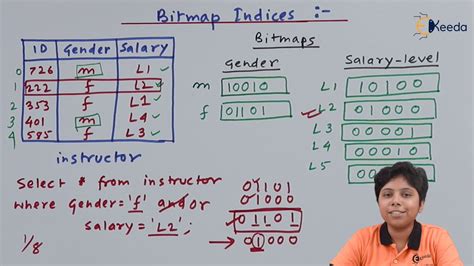 Bitmap Indices :-
Keeda
Bitmaps
ID Gender Salary
Gender
Salary-level
0 726 m L1 ✓
1 222 f L2 ✓
2 353 f L1 ✓
3 401 m L4 ✓
4 585 f L3 ✓
m 10010
f 01101
L1 10100
L2 01000
L3 00001
L4
L5
instructor
Select * from instructor
where Gender='f' and/or
Salary='L2';
01101
01000
01101
01000
1/8